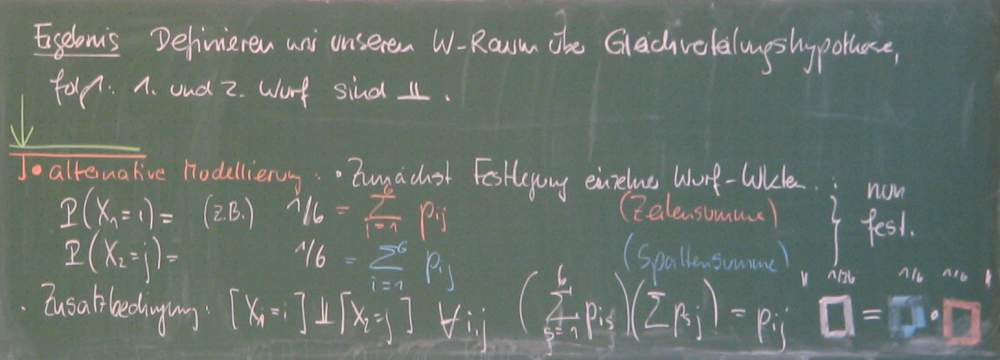 Ergebnis Definieren wir unseren W-Raum über Gleichverteilungshypothese,
folgt: 1. und 2. Wurf sind ⊥⊥.
• alternative Modellierung: • Zunächst Festlegung einzelner Wurf-Wkten.: nun
P(X₁=i) = (z.B.) 1/6 = ∑_{j=1}^6 p_ij (Zeilensumme) fest.
P(X₂=j) = 1/6 = ∑_{i=1}^6 p_ij (Spaltensumme)
"1/36 1/6 1/6"
• Zusatzbedingung: [X₁=i] ⊥⊥ [X₂=j] ∀i,j (∑_{j=1}^6 p_ij)(∑ p_ij) = p_ij □ = □ • □